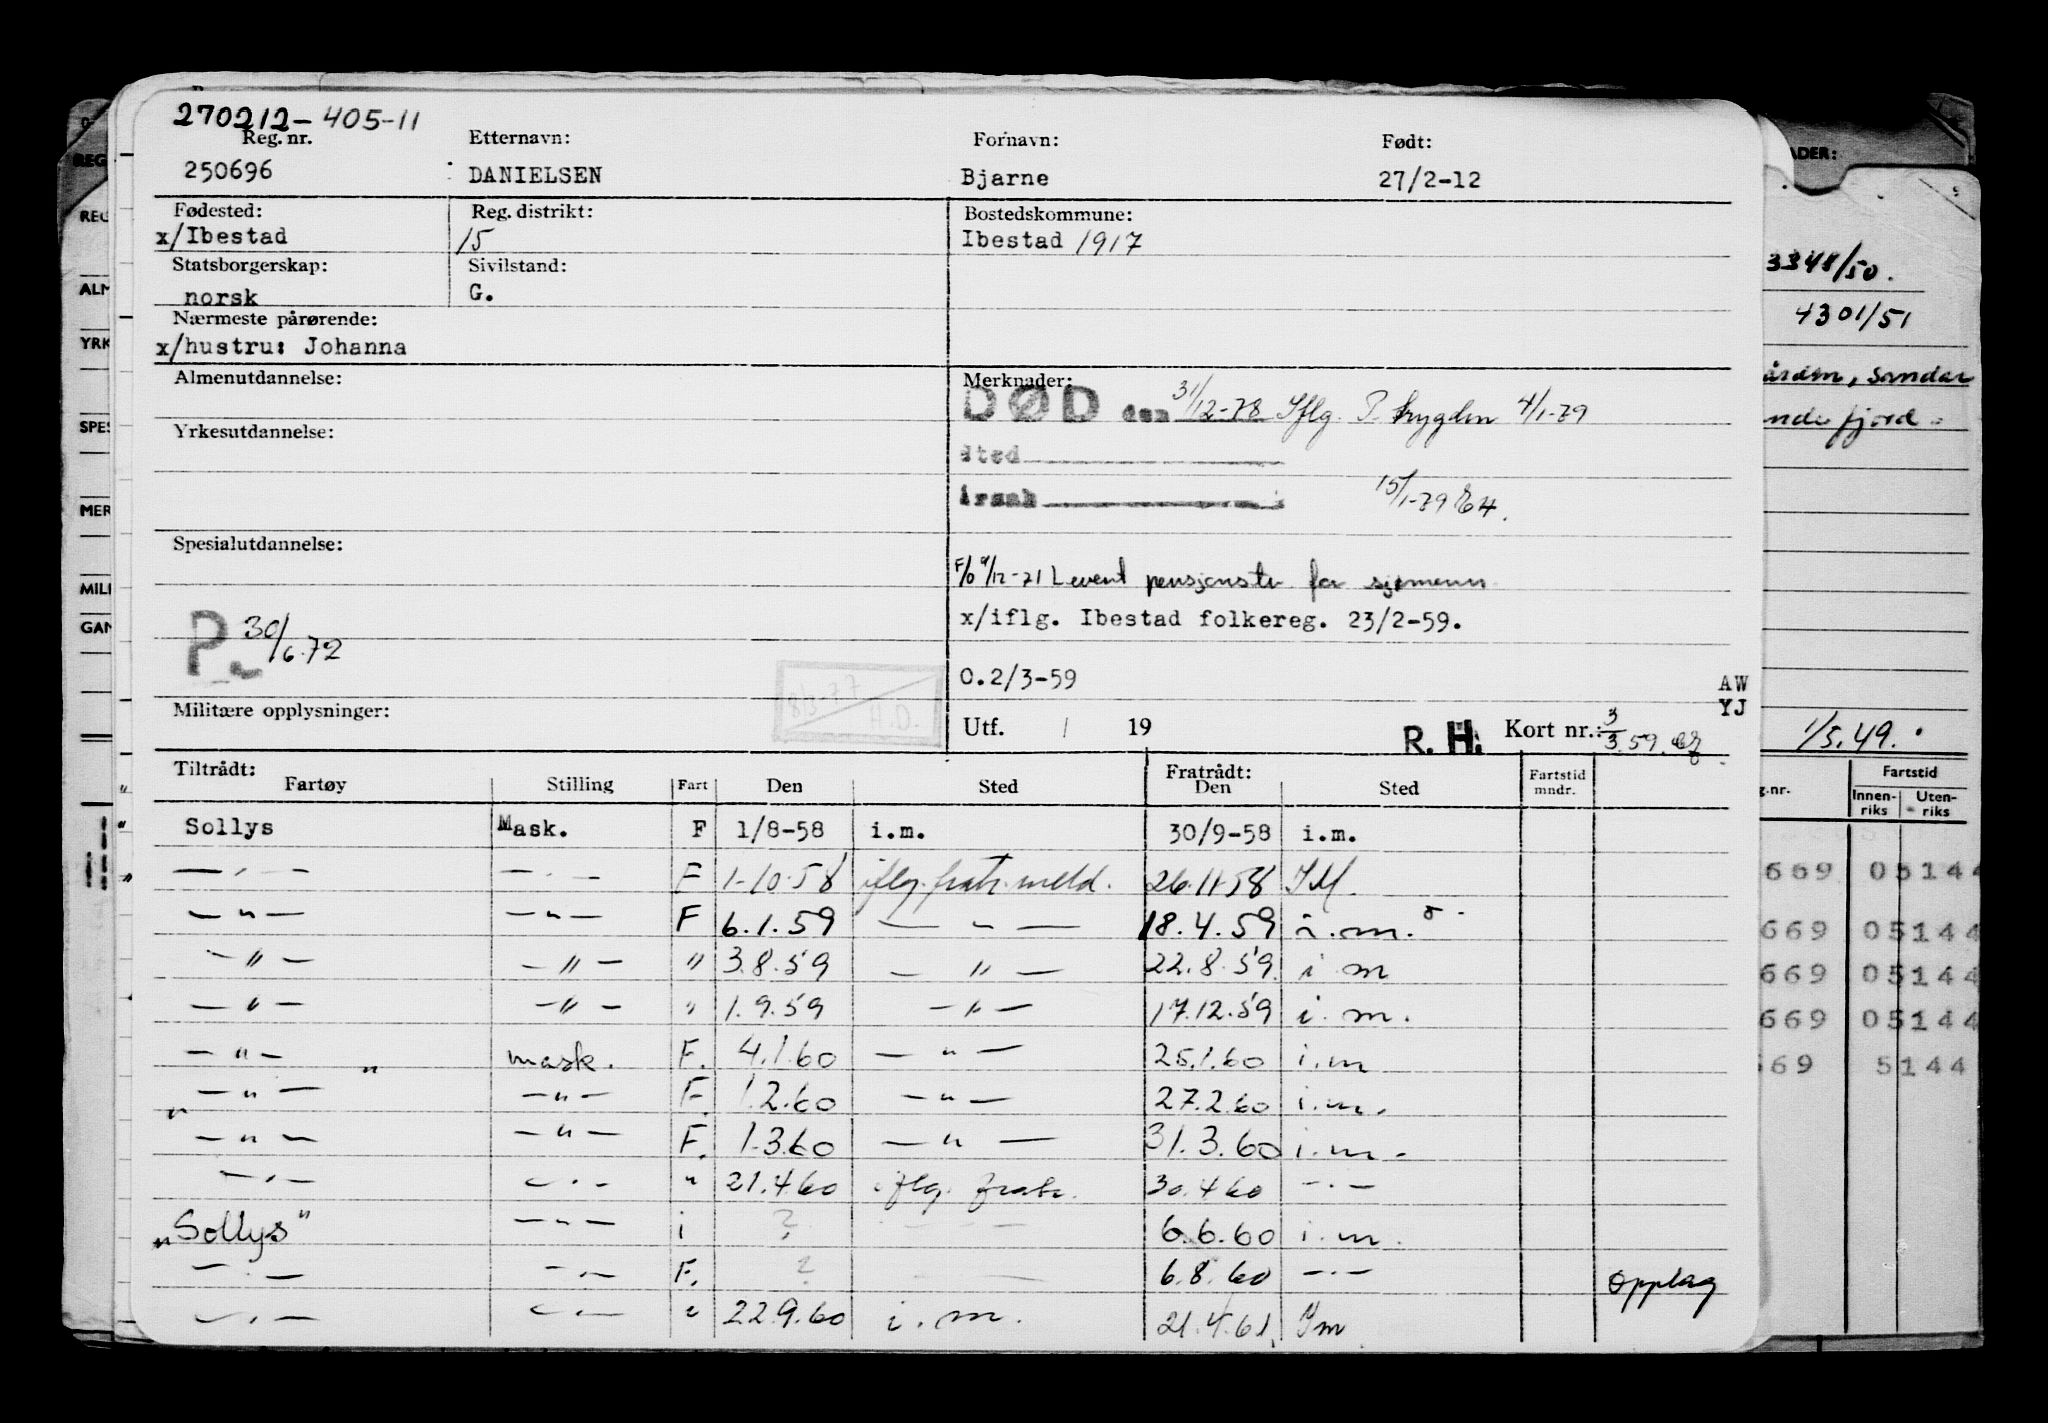 270212-405-11
Reg. nr. Etternavn: Fornavn: Født:
250696 DANIELSEN Bjarne 27/2-12
Fødested: Reg. distrikt: Bostedskommune:
x/Ibestad 15 Ibestad 1917
Statsborgerskap: Sivilstand:
norsk G.
Nærmeste pårørende:
x/hustru: Johanna
Almenutdannelse: Merknader:
DØD den 31/12-78 Iflg. P. trygden 4/1-79
Yrkesutdannelse:
sted
årsak 15/1-79
Spesialutdannelse:
pensjonstr. for sjømenn
x/iflg. Ibestad folkereg. 23/2-59.
P. 30/6.72
O.2/3-59
AW
YJ
8/3-77
H.D.
Militære opplysninger: Utf. / 19 R. H. Kort nr.: 3
3/3.59.
Tiltrådt: Fratrådt:
Fartøy Stilling Fart Den Sted Den Sted Fartstid mndr.
Sollys Mask. F 1/8-58 i.m. 30/9-58 i.m.
— . — — . — F 1-10-58 iflg. fratr. meld. 26.11.58 IM.
— " — — " — F 6.1.59 — " — 18.4.59 i.m.
— " — — " — " 3.8.59 — " — 22.8.59. i m
— " — — " — " 1.9.59 — " — 17.12.59 i. m.
— " — " mask. F. 4.1.60 — " — 25.1.60 i.m
— " — — " — F. 1.2.60 — " — 27.2.60 i.m.
— " — — " — F. 1.3.60 — " — 31.3.60 i.m.
— . — — . — " 21.4.60 iflg. fratr. 30.4.60 — . —
"Sollys" — " — i ? — — — 6.6.60 i.m.
— . — — . — F. ? — 6.8.60 — . — Opplag
— . — — . — " 22.9.60 i.m. 21.4.61. Im
REG
REG
ALM
YRK
SPES
MER
MILI
GAN
ADER:
3348/50.
4301/51
, Sandar
1/5.49.
g.nr. Fartstid
Innen-riks Uten-riks
669 05144
669 05144
669 05144
669 05144
69 5144